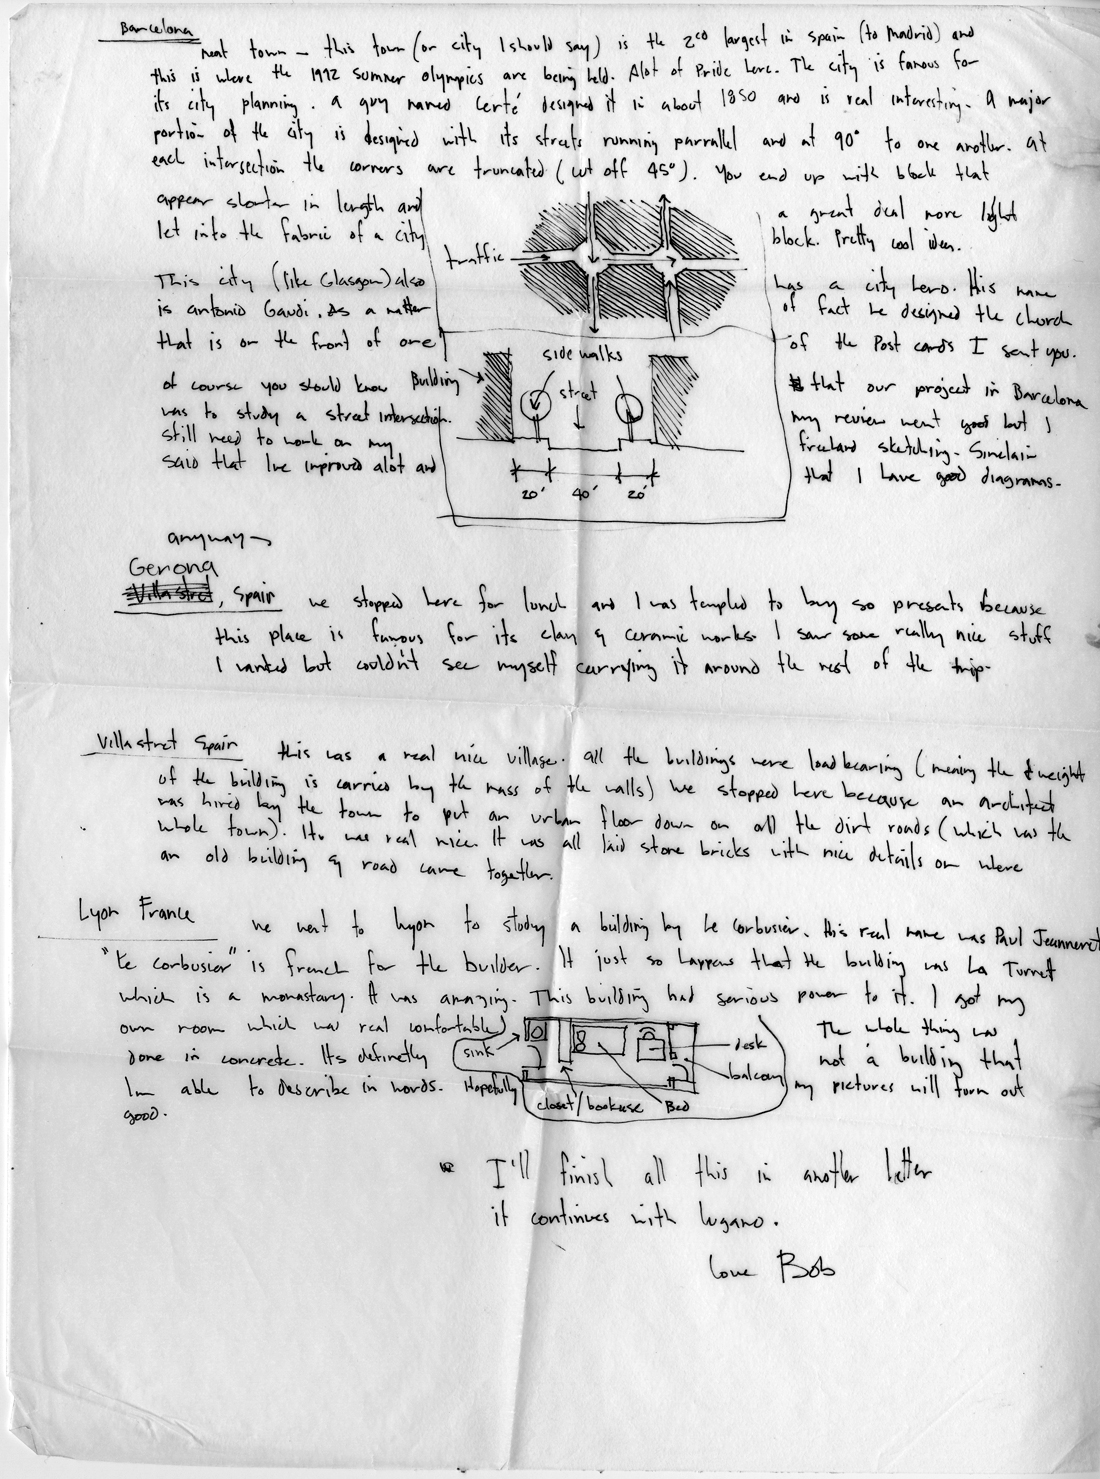 Barcelona
neat town - this town (or city I should say) is the 2cd largest in spain (to Madrid) and
this is where the 1992 summer olympics are being held. Alot of Pride here. The city is famous for
its city planning. a guy named Certé designed it in about 1850 and is real interesting. A major
portion of the city is designed with its streets running parrallel and at 90° to one another. at
each intersection the corners are truncated (cut off 45°). You end up with block that
appear shorter in length and a great deal more light
let into the fabric of a city block. Pretty cool idea.
traffic
This city (like Glasgow) also has a city hero. His name
is antonio Gaudi. As a matter of fact he designed the church
that is on the front of one of the Post cards I sent you.
side walks
Building
street
of course you should know that our project in Barcelona
was to study a street intersection. my review went good but I
still need to work on my freehand sketching. Sinclair
said that Ive improved alot and that I have good diagrams.
20' 40' 20'
anyway
Gerona
Villa stret, Spain we stopped here for lunch and I was tempted to buy so presents because
this place is famous for its clay & ceramic works. I saw some really nice stuff
I wanted but couldn't see myself carrying it around the rest of the trip.
Villa stret Spain this was a real nice village. all the buildings were load bearing (meaning the weight
of the building is carried by the mass of the walls) We stopped here because an architect
was hired by the town to put an urban floor down on all the dirt roads (which was the
whole town). It was real nice. It was all laid stone bricks with nice details on where
an old building & road came together.
Lyon France we went to Lyon to study a building by Le Corbusier. His real name was Paul Jeanneret
"Le corbusier" is french for the builder. It just so happens that the building was La Turret
which is a monastary. It was amazing. This building had serious power to it. I got my
own room which was real comfortable. The whole thing was
sink
desk
done in concrete. Its definetly not a building that
balcony
Im able to describe in words. Hopefully my pictures will turn out
closet/bookcase Bed
good.
I'll finish all this in another letter
it continues with Lugano.
Love Bob